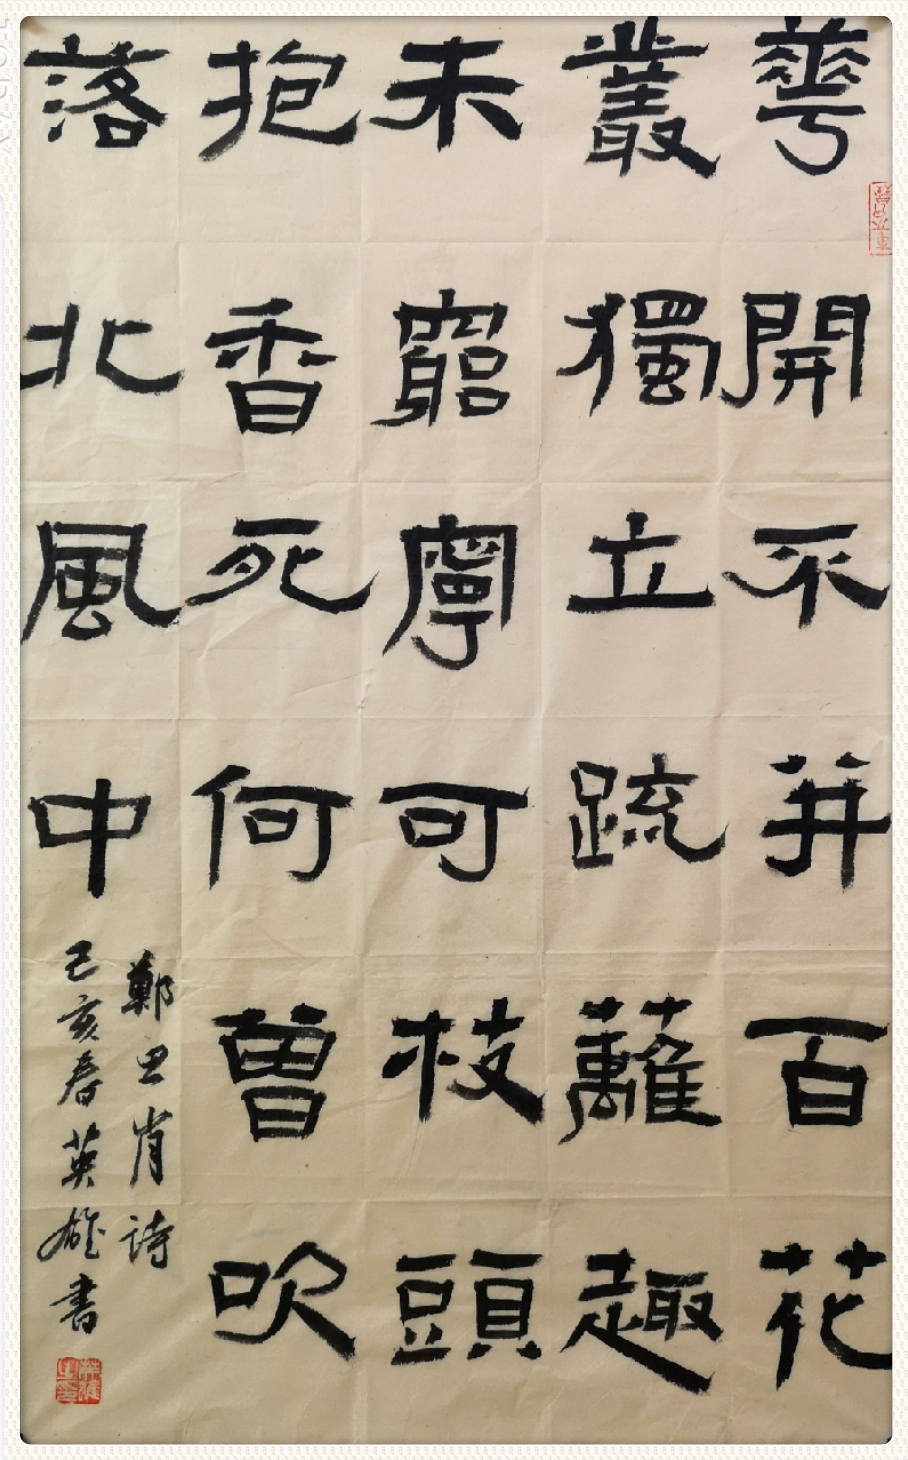 華開不并百花
叢獨立疏蘺趣
未窮寧可枝頭
抱香死何曾吹
落北風中
鄭思肖詩
己亥春英雄書